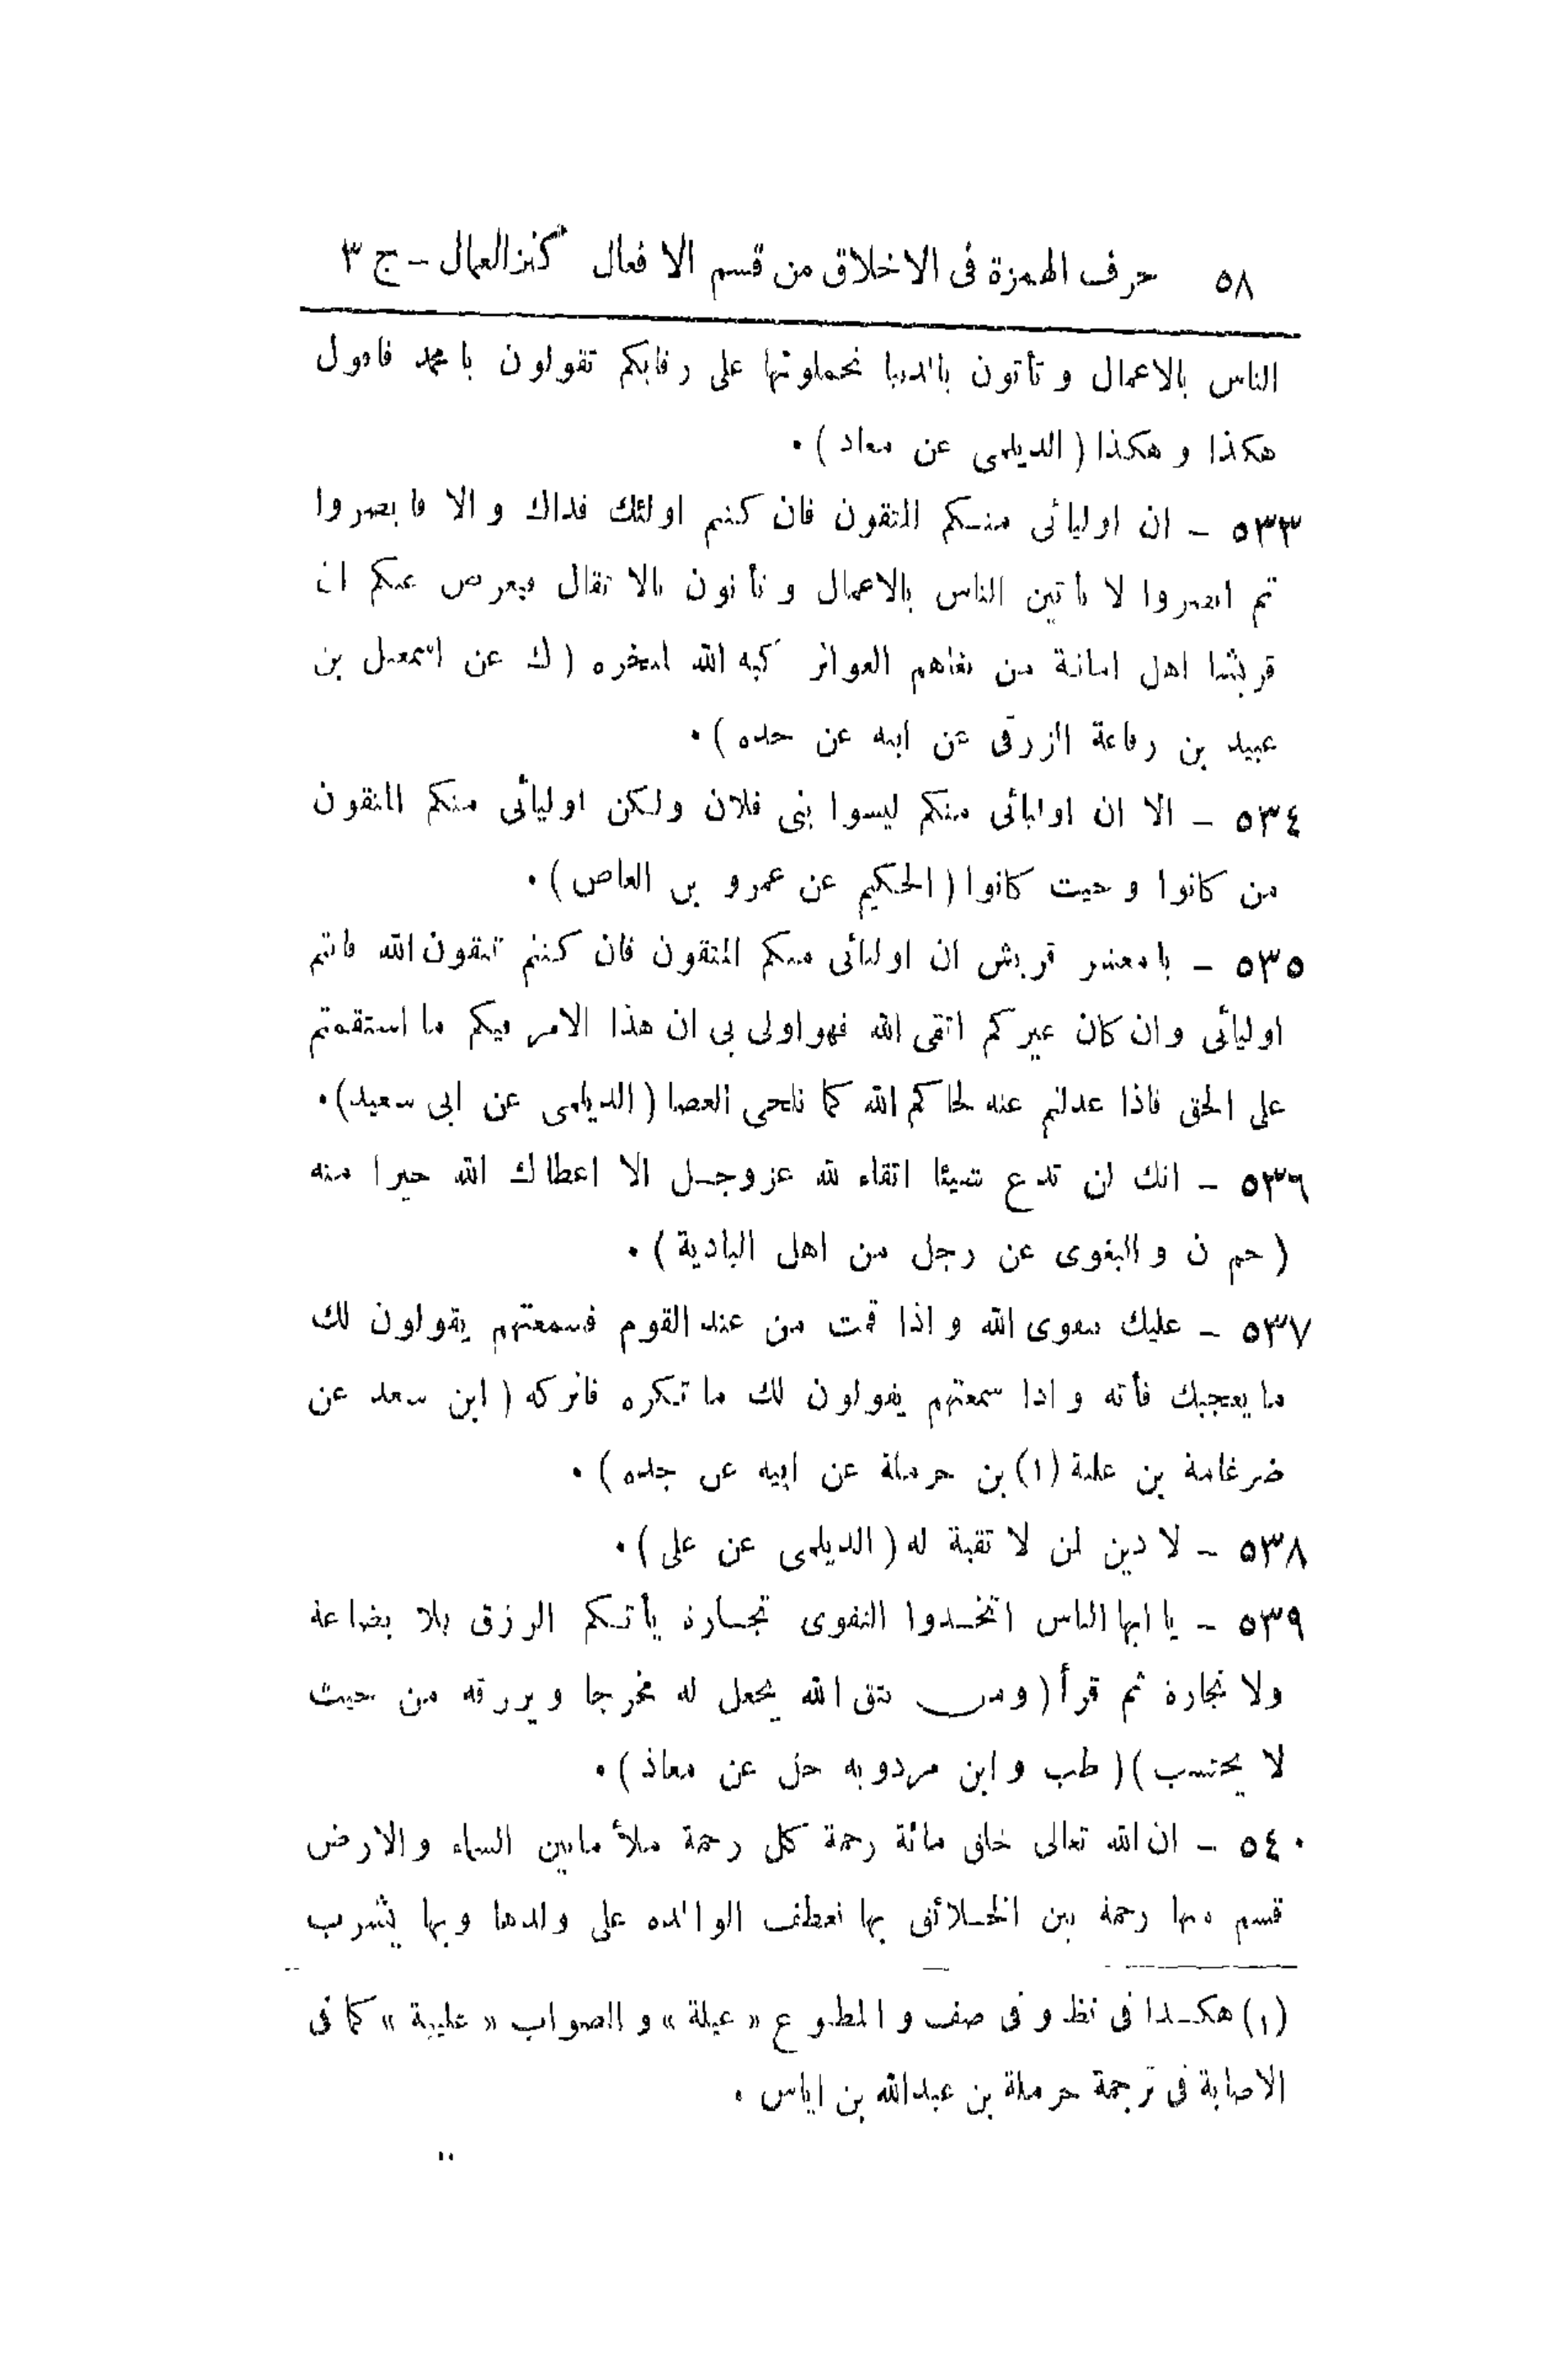 ٥٨ حرف الهمزة فى الاخلاق من قسم الافعال كنزالعمال – ج ٣
الناس بالاعمال و تأتون بالدنيا تحملونها على رقابكم تقولون يا محمد فاقول
هكذا و هكذا ( الديلمى عن معاذ ) ٠
٥٣٣ – ان اوليائى منكم المتقون فان كنتم اولئك فذاك و الا فابصروا
ثم ابصروا لا يأتين الناس بالاعمال و تأتون بالاثقال فيعرض عنكم ان
قريشا اهل امانة من بغاهم العواثر كبه الله لمنخره ( ك عن اسمعيل بن
عبيد بن رفاعة الزرقى عن ابيه عن جده ) ٠
٥٣٤ – الا ان اوليائى منكم ليسوا بنى فلان ولكن اوليائى منكم المتقون
من كانوا و حيث كانوا ( الحكيم عن عمرو بن العاص ) ٠
٥٣٥ – يا معشر قريش ان اوليائى منكم المتقون فان كنتم تتقون الله فانتم
اوليائى و ان كان غيركم اتقى الله فهو اولى بى ان هذا الامر فيكم ما استقمتم
على الحق فاذا عدلتم عنه لحاكم الله كما تلحى العصا ( الديلمى عن ابى سعيد ) ٠
٥٣٦ – انك لن تدع شيئا اتقاء لله عزوجل الا اعطاك الله خيرا منه
( حم ن و البغوى عن رجل من اهل البادية ) ٠
٥٣٧ – عليك بتقوى الله و اذا قمت من عند القوم فسمعتهم يقولون لك
ما يعجبك فأته و اذا سمعتهم يقولون لك ما تكره فاتركه ( ابن سعد عن
ضرغامة بن علبة (١) بن حرملة عن ابيه عن جده ) ٠
٥٣٨ – لا دين لمن لا تقية له ( الديلمى عن على ) ٠
٥٣٩ – يا ايها الناس اتخذوا التقوى تجارة يأتكم الرزق بلا بضاعة
ولا تجارة ثم قرأ ( ومن يتق الله يجعل له مخرجا و يرزقه من حيث
لا يحتسب ) ( طب و ابن مردويه حل عن معاذ ) ٠
٥٤٠ – ان الله تعالى خلق مائة رحمة كل رحمة ملأ مابين السماء و الارض
قسم منها رحمة بين الخلائق بها تعطف الوالده على ولدها و بها يشرب
(١) هكذا فى نظ و فى صف و المطبوع « عيلة » و الصواب « عليبة » كما فى
الاصابة فى ترجمة حرملة بن عبدالله بن اياس ٠